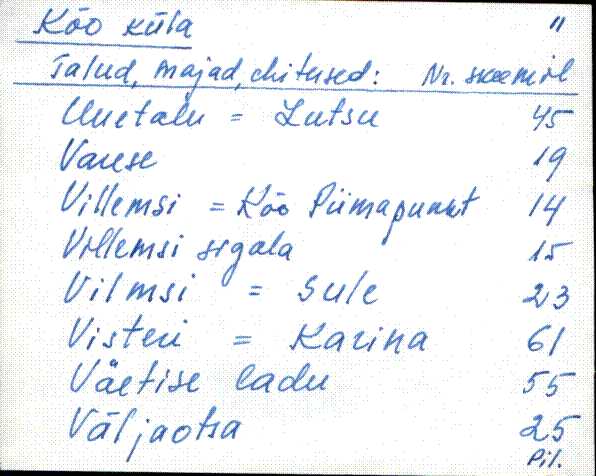 Kõo küla "
Talud, majad, ehitused: Nr. skeemil
Uuetalu = Lutsu 45
Varese 19
Villemsi = Kõo Piimapunkt 14
Villemsi sigala 15
Vilmsi = Sule 23
Visteri = Karina 61
Väetise ladu 55
Väljaotsa 25
Pil.